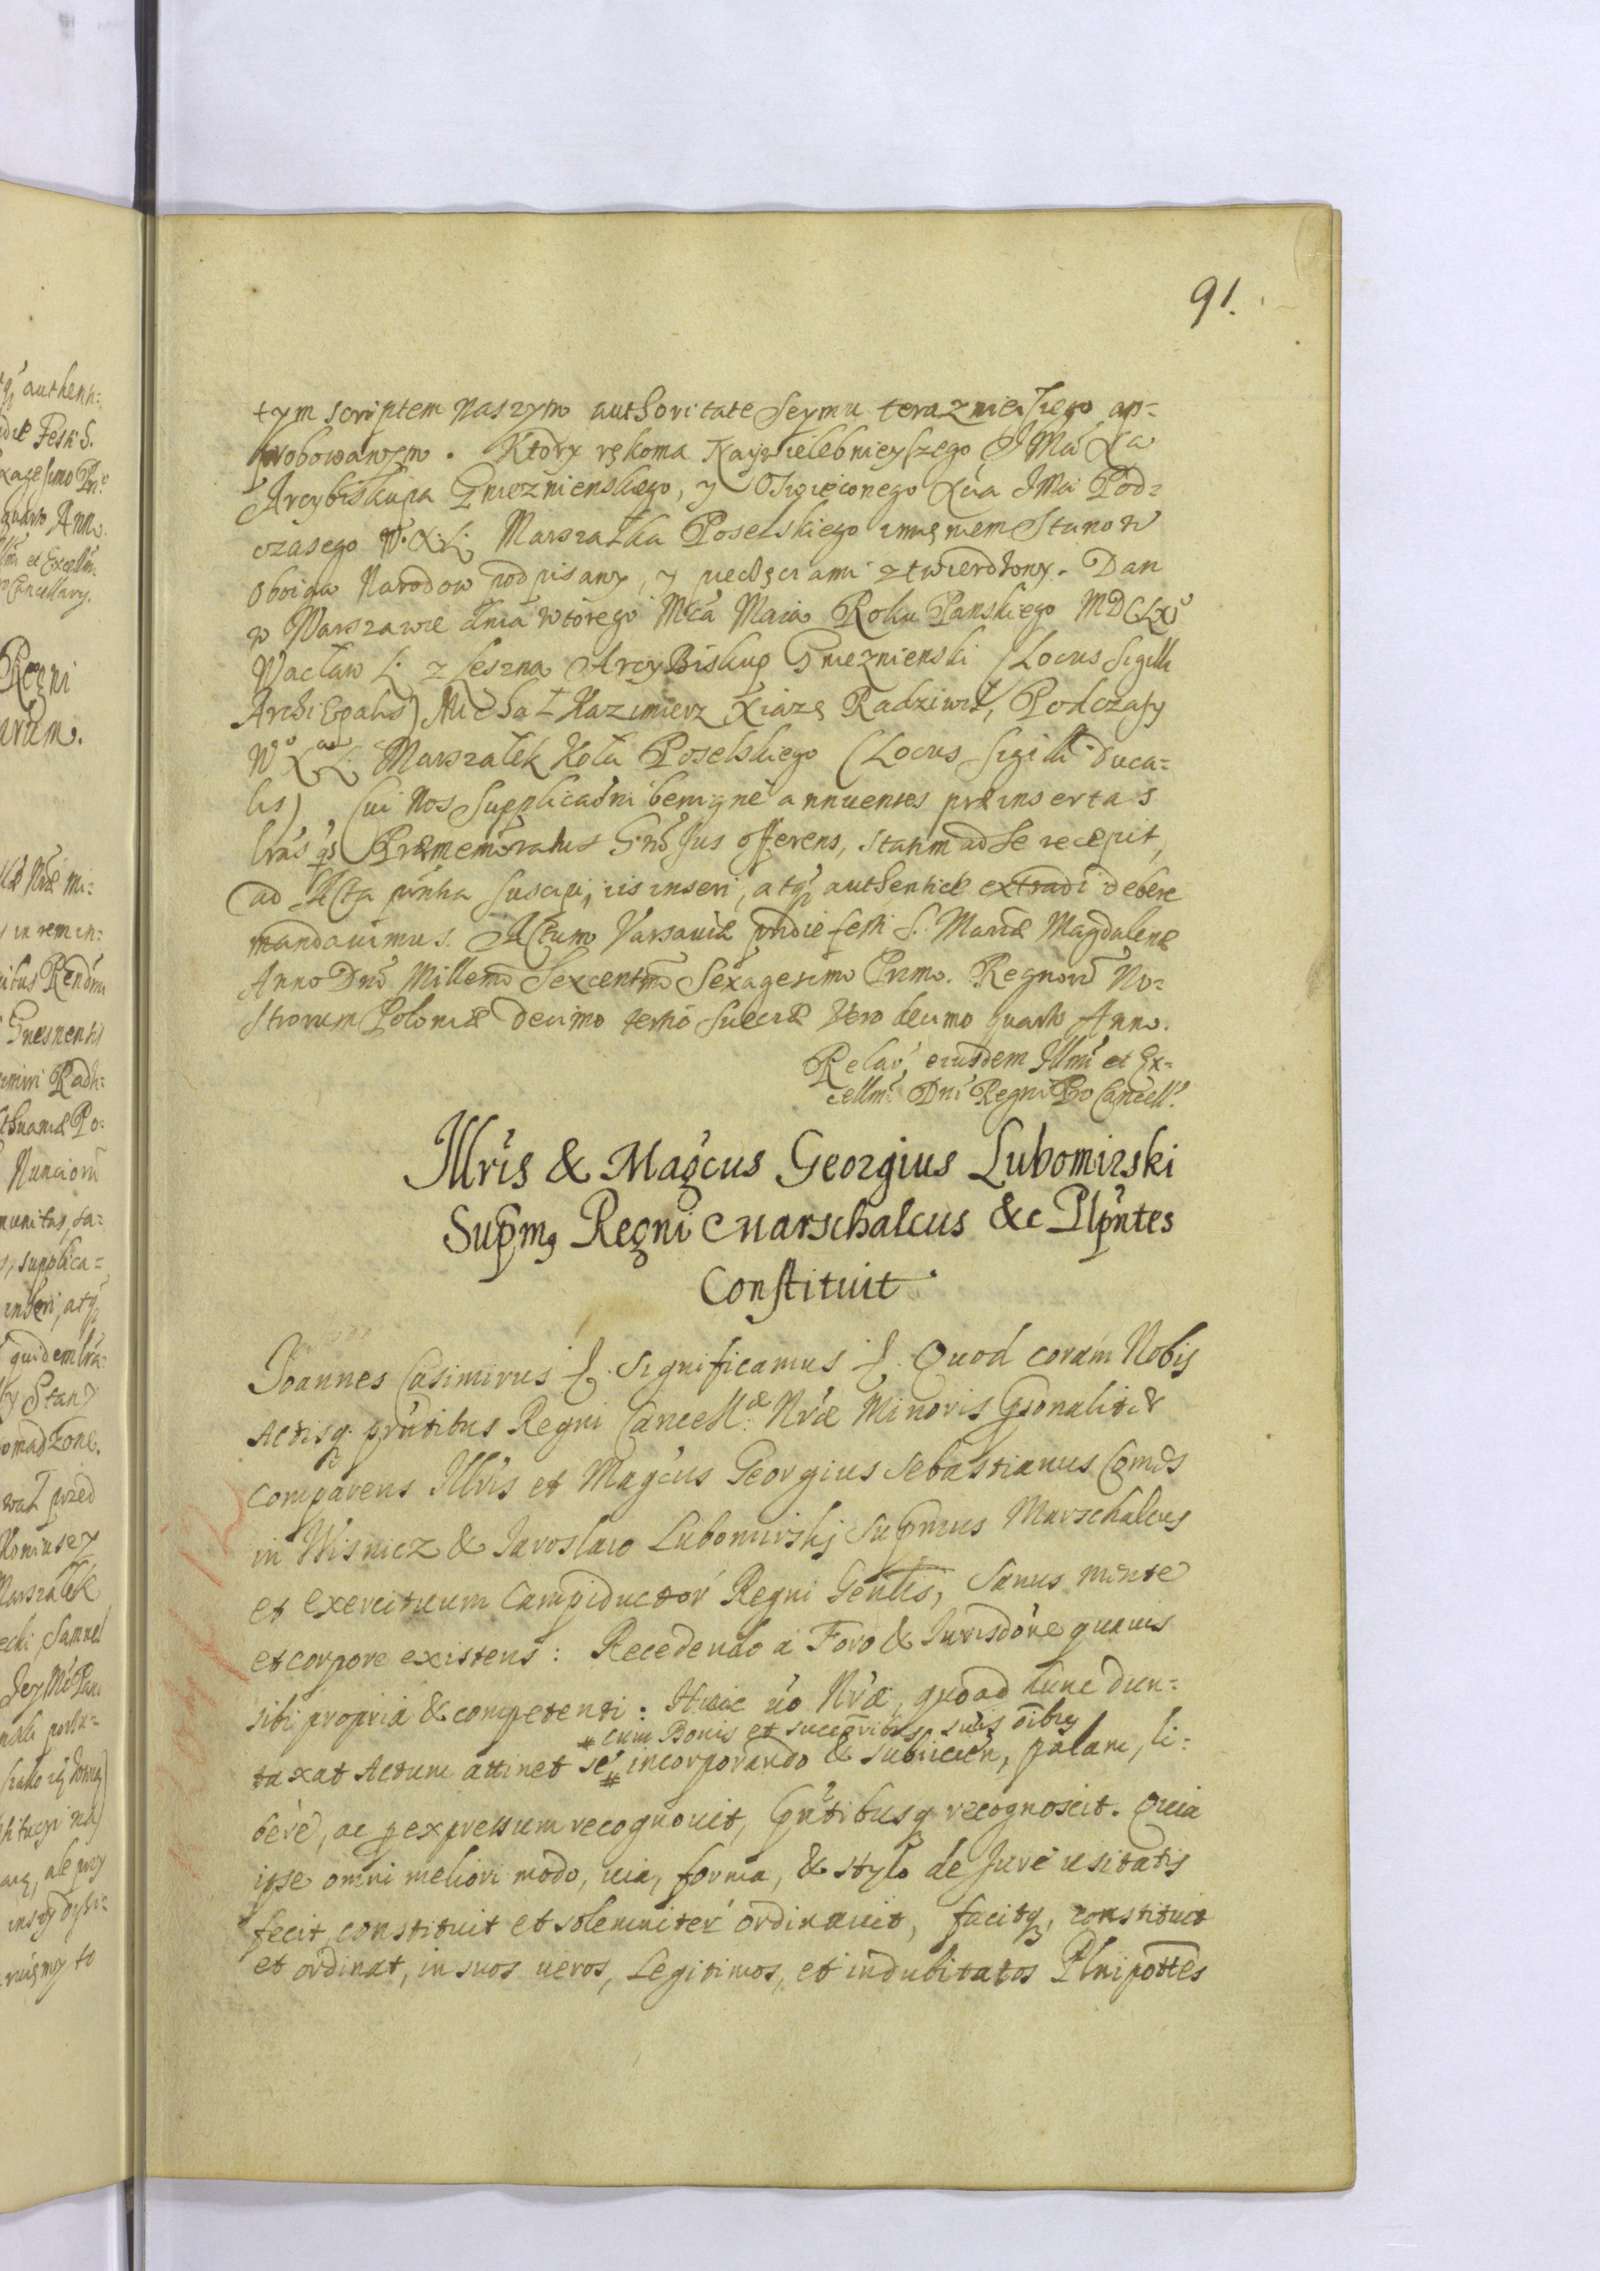 91.
tym scriptem naszym authoritate Seymu teraznieiszego ap-
probowanym. Ktory rękoma Naywielebnieyszego JMci Xa
Arcybiskupa Gnieznienskiego, y Oswieconego Xcia JMci Pod-
czaszego W.X.L. Marszałka Poselskiego imieniem Stanow
oboiga Narodow podpisany, y pieczęciami ztwierdzony. Dan
w Warszawie dnia wtorego Mca Maia Roku Panskiego MDCLXI
Wacław L. z Leszna ArcyBiskup Gnieznienski (Locus Sigilli
ArchiEpalis) Michał Kazimierz Xiąże Radziwił, Podczaszy
W X L. Marszałek Koła Poselskiego (Locus Sigilli Duca-
lis), Cui Nos Supplicaoni benigne annuentes præinsertas
lras qs Præmemoratus Gnosus offerens, statim ad se recepit,
ad Acta pñtia suscipi, iis inseri, atq authentice extradi debere
mandavimus. Actum Varsaviæ pridie festi S. Mariæ Magdalenæ
Anno Dni Millemo Sexcentmo Sexagesimo Primo. Regnorũ No-
strorum Poloniæ decimo tertio Sueciæ Vero decimo quarto Anno.
Relao eiusdem Illmi et Ex-
cellmi Dni Regni Pro Cancell.
Illris & Magcus Georgius Lubomirski
Supmg Regni Marschalcus &c Plpntes
Constituit.
Joannes Casimirus Significamus Quod coram Nobis
Actisq prntibus Regni Cancellæ Nræ Minoris Psonaliter
comparens Illris et Magcus Georgius Sebastianus Comes
in Wisnicz & Jaroslaw Lubomirskj Supmus Marschalcus
et exercituum Campiductor Regni Gentis, Sanus mente
et corpore existens: Recedendo à Foro & Jurisdone quavis
sibi propria & competenti: Huic uo Nræ, quoad hunc dun-
# cum Bonis et succoribus suis oibus
taxat Actum attinet se # incorporando & subiicien, palam, li-
bere, ac p expressum recognovit, Pntibusq recognoscit. Quia
ipse omni meliori modo, via, forma, & stylo de Jure usitatis
fecit, constituit et solemniter ordinavit, facitq, constituit
et ordinat, in suos veros, Legitimos, et indubitatos Plnipottes